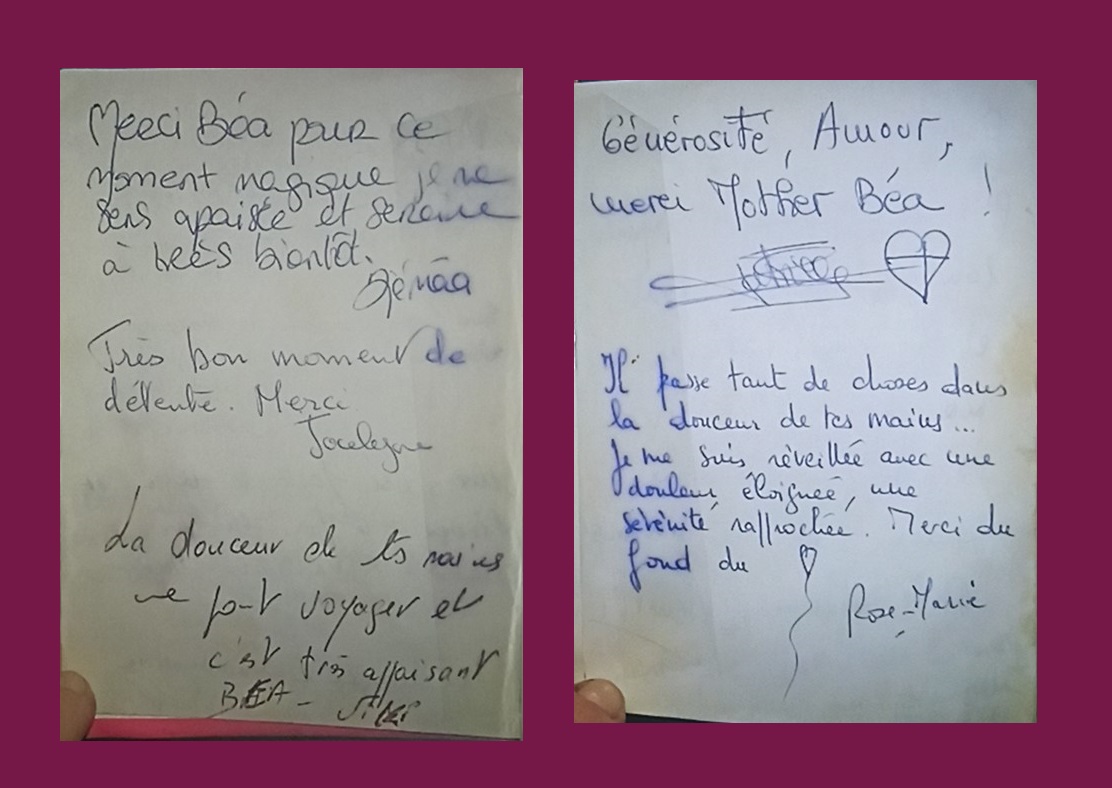 Merci Béa pour ce
moment magique je me
sens apaisée et sereine
à très bientôt.
Djemâa
Très bon moment de
détente. Merci
Jocelyne
La douceur de ts mains
me font voyager et
c'est très appaisant
BEA -
Générosité, Amour,
merci Mother Béa !
Il passe tant de choses dans
la douceur de tes mains...
Je me suis réveillée avec une
douleur éloignée, une
sérénité rapprochée. Merci du
fond du
Rose-Marie